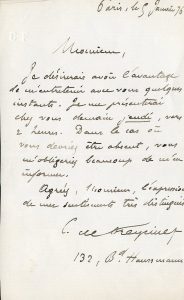 Paris, le 5 janvier 76
Monsieur,
Je désirerais avoir l'avantage
de m'entretenir avec vous quelques
instants. Je me présenterai
chez vous demain, jeudi, vers
2 heures. Dans le cas où
vous devriez être absent, vous
m'obligeriez beaucoup de m'en
informer.
Agréez, Monsieur, l'expression
de mes sentiments très distingués
C. de Freycinet
132, Bd Haussmann